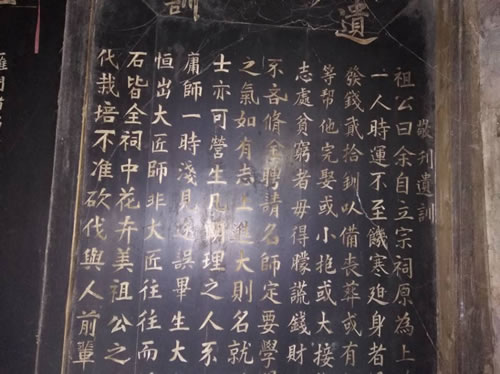 遺訓
敬刊遺訓
祖公曰余自立宗祠原為上
一人時運不至饑寒廹身者
發錢貳拾釧以備喪葬或有
等幫他完娶或小抱或大接
志處貧窮者毋得朦謊錢財
不吝脩金聘請名師定要學
之氣如有志上進大則名就
士亦可營生凡明理之人系
庸師一時淺見誤畢生大
恒出大匠師非大匠往往而
石皆全祠中花卉美祖公之
代栽培不准砍伐與人前輩